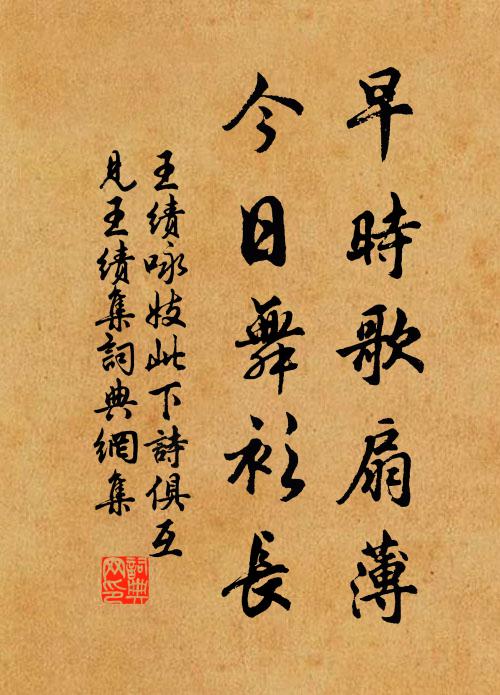 早時歌扇薄
今日舞衫長
王績咏妓此下詩俱互
見王績集詞典網集
詞典
网印